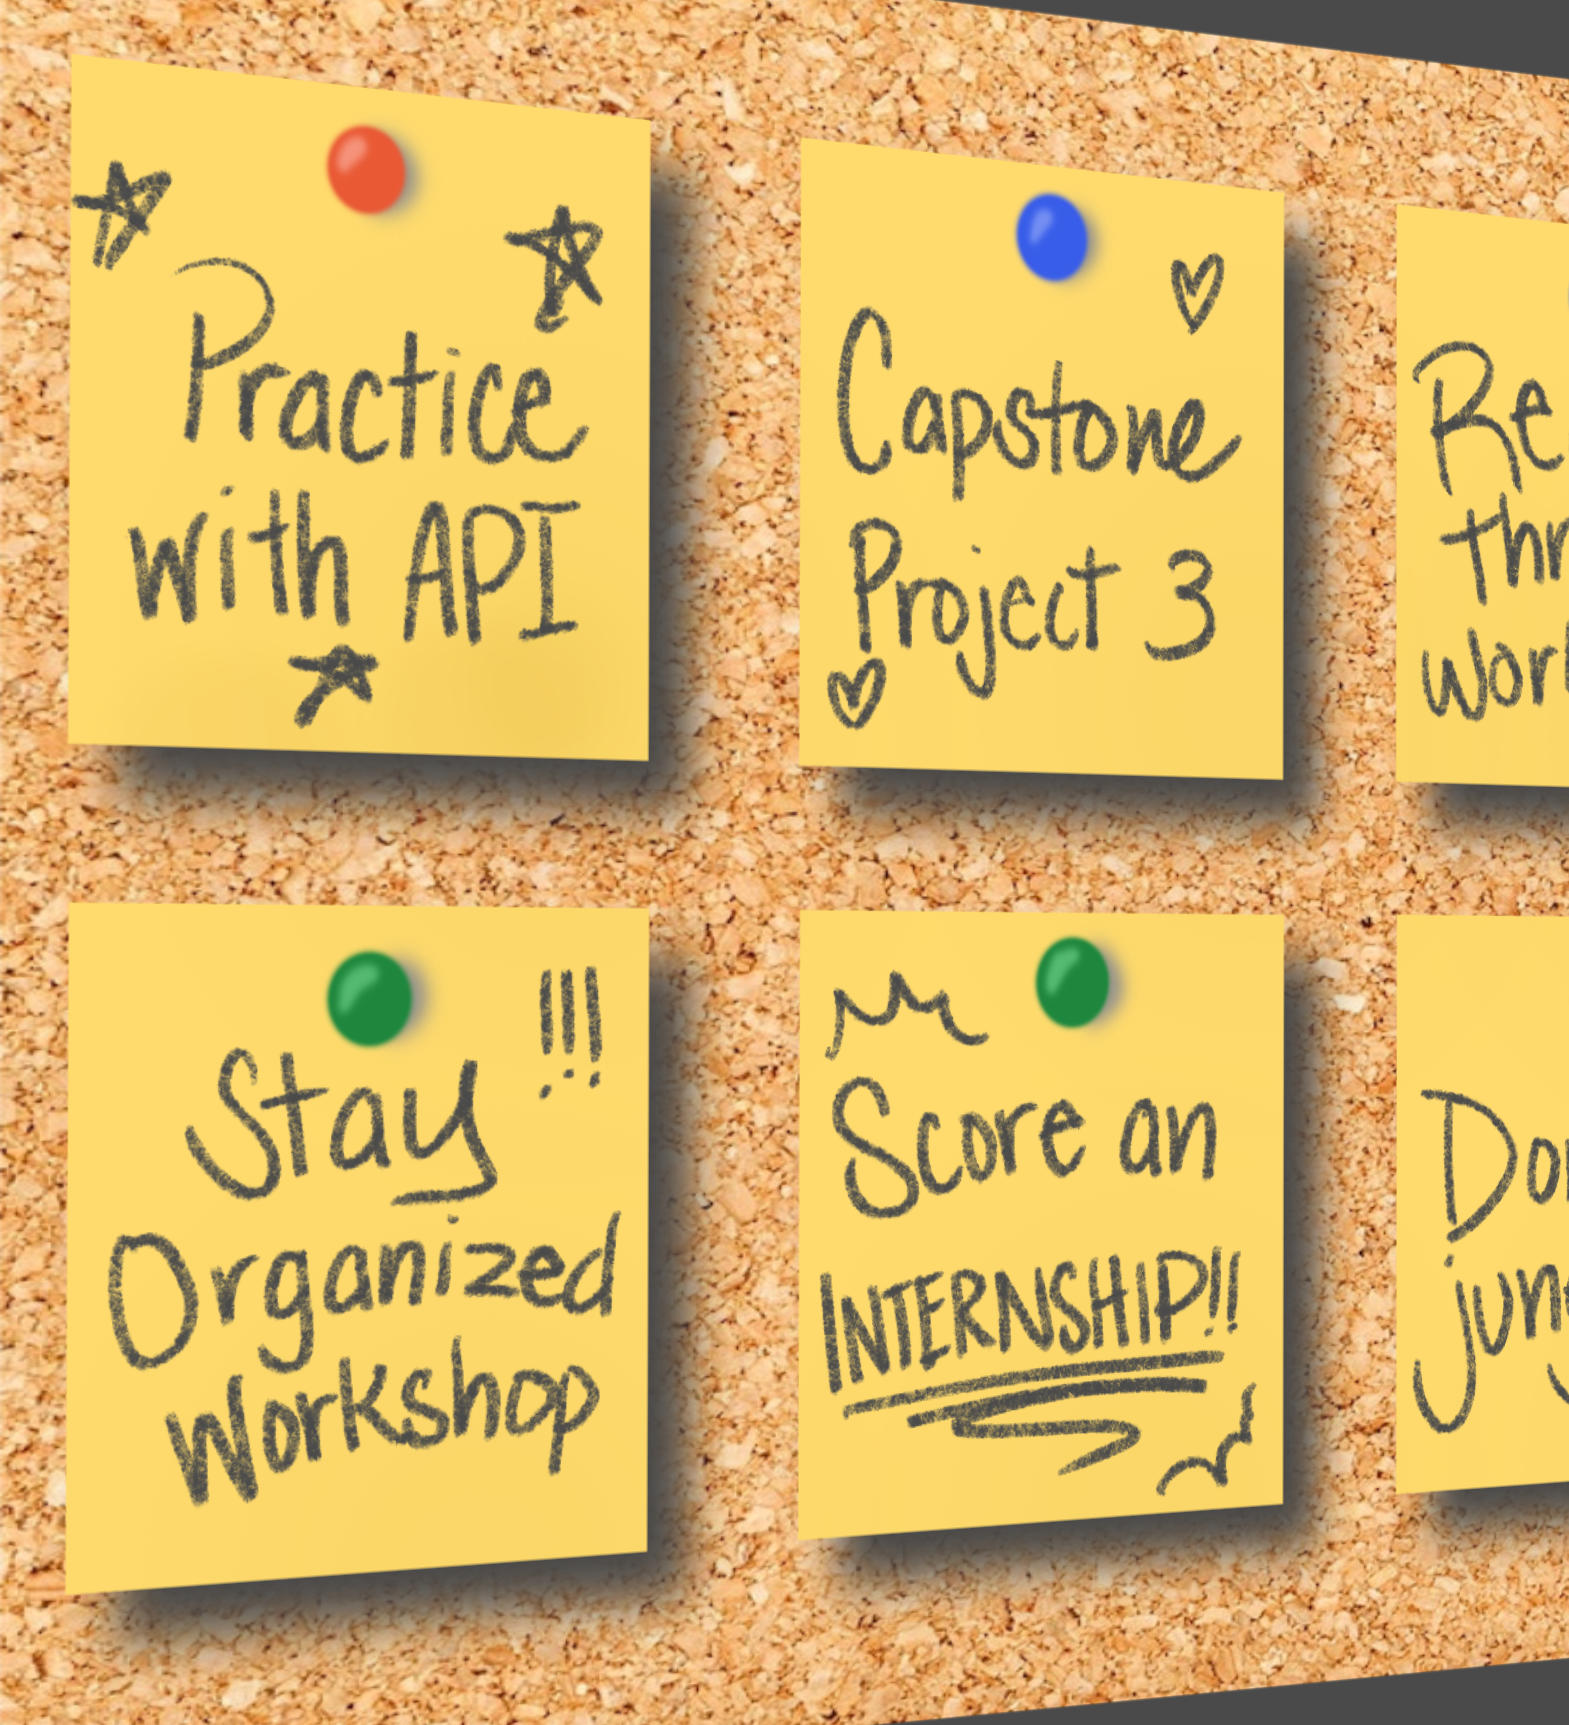 Practice
with API
Capstone
Project 3
Re
thr
Work
!!!
Stay
Organized
Workshop
Score an
INTERNSHIP!!